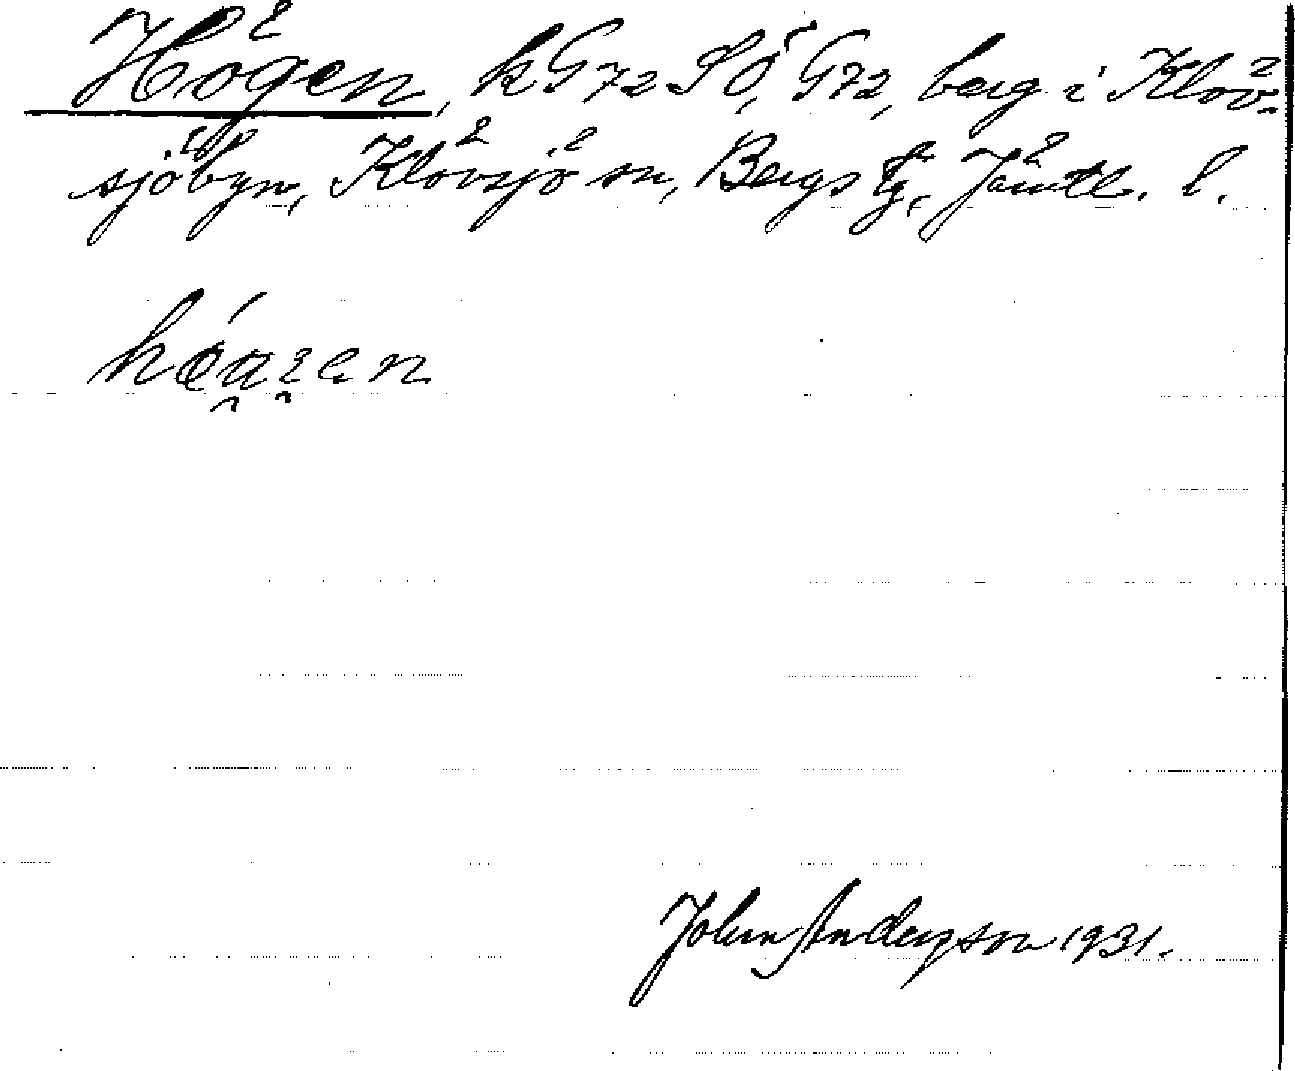 Högen, k G72 SÖ, G72, berg i Klöv-
sjöbyn, Klövsjö sn, Bergs tg, Jämtl. l.
John Anderson 1931.